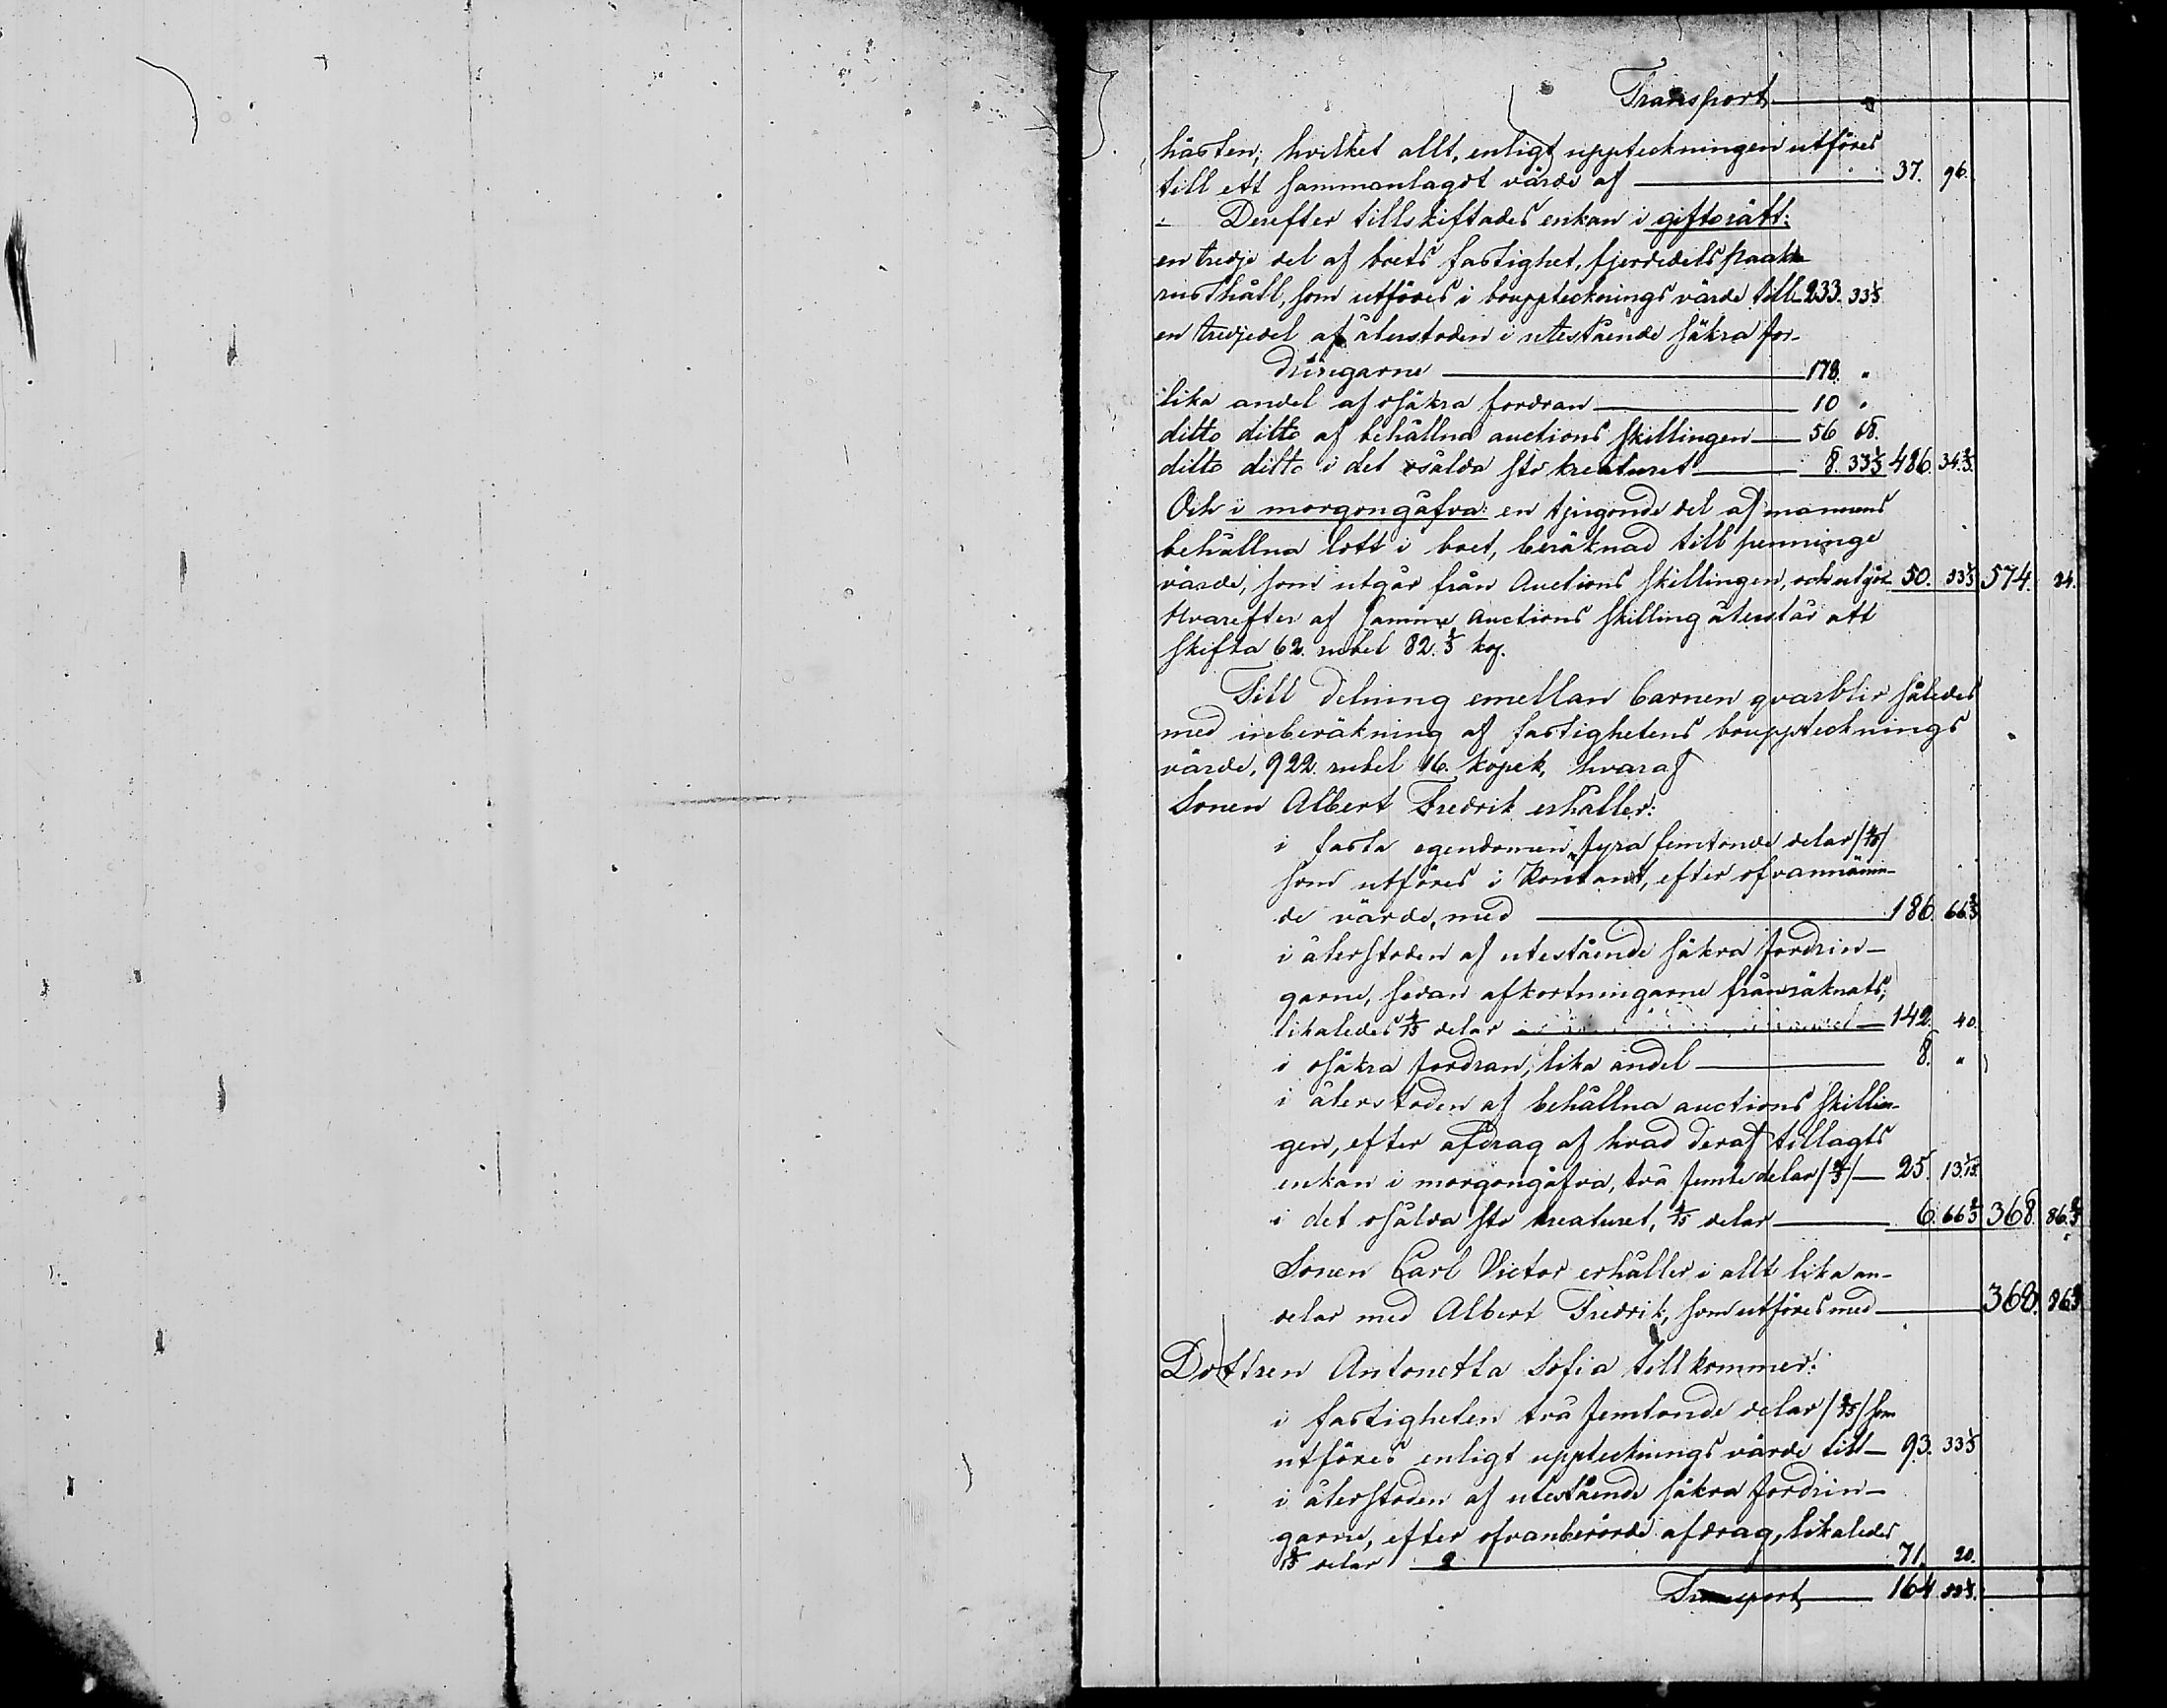 Transport
hästen; hvilket allt, enligt uppteckningen utföres
till ett sammanlagdt värde af 37. 96.
Derefter tillskiftades enkan i giftorätt:
en tredje del af boets fastighet, fjerdedels
rusthåll, som utföres i boupptecknings värde till 233. 33⅓
en tredjedel af återstoden i utestående säkra for-
dringarne 178. "
lika andel af osäkra fordran 10 "
ditto ditto af behållna auctions skillingen 56 68.
ditto ditto i det osålda sto kreaturet 8. 33⅓ 486. 34.⅔
Och i morgongåfva: en tjugonde del af mannens
behållna lott i boet, beräknad till penninge
värde, som utgår från Auctions skillingen, och utgör 50. 33⅓ 574. 24.
Hvarefter af samma Auctions skilling återstår att
skifta 62. rubel 82.⅔ kop.
Till delning emellan barnen qvarblir således
med inberäkning af fastighetens boupptecknings
värde, 922. rubel 16. kopek, hvaraf
Sonen Albert Fredrik erhåller:
i fasta egendomen, fyra femtonde delar /4/15/
som utföres i Kontant, efter ofvannämn-
de värde, med 186. 66⅔
i återstoden af utestående säkra fordrin-
garne, sedan afkortningarne frånräknats,
likaledes 4/15 delar 142. 40.
i osäkra fordran, lika andel 8. "
i återstoden af behållna auctions skillin-
gen, efter afdrag af hvad deraf tillagts
enkan i morgongåfva, två femtedelar /2/5/ 25. 13.1/15
i det osålda sto kreaturet, 4/15 delar 6. 66⅔ 368. 86.⅔
Sonen Carl Victor erhåller i allt lika an-
delar med Albert Fredrik, som utföres med 368. 86⅔
Dottren Antonetta Sofia tillkommer:
i fastigheten två femtonde delar /2/15/ som
utföres enligt uppteckningsvärde till 93. 33⅓
i återstoden af utestående säkra fordrin-
garne, efter ofvanberörde afdrag, likaledes
2/15 delar 71. 20.
Transport 164. 53⅓.